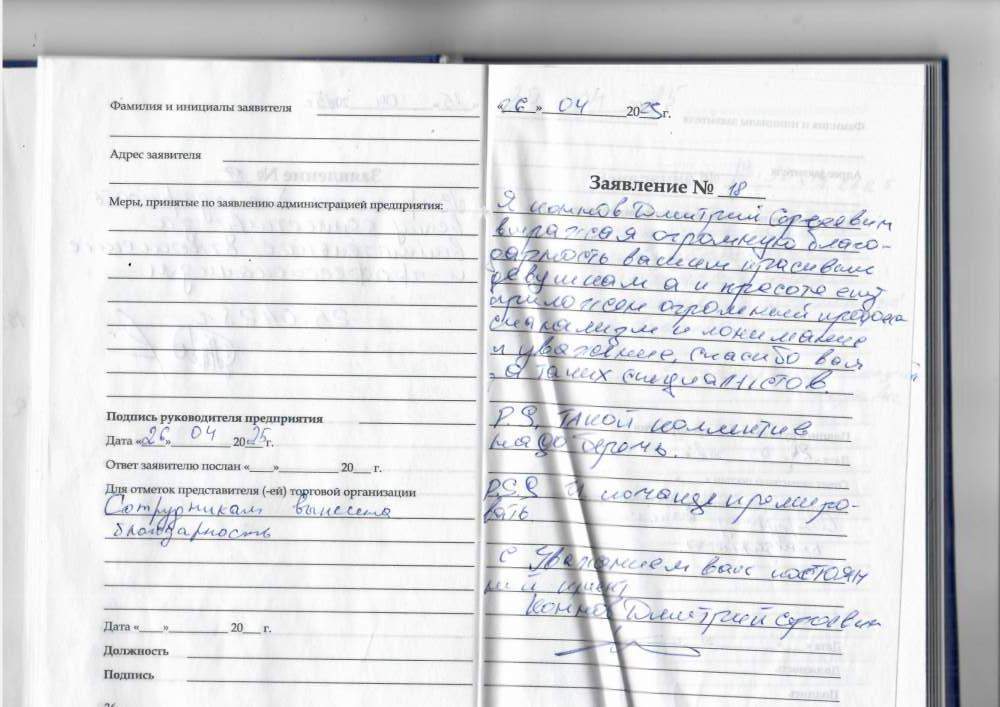 Фамилия и инициалы заявителя
Адрес заявителя
Меры, принятые по заявлению администрацией предприятия:
Подпись руководителя предприятия
Дата «26» 04 2025г.
Ответ заявителю послан «___»__________ 20___ г.
Для отметок представителя (-ей) торговой организации
Сотрудникам вынесена
благодарность
Дата «___»__________ 20___ г.
Должность
Подпись
«26» 04 2025г.
Заявление № 18
Я Дмитрий Сергеевич
выражая огромную благо-
дарность вашим красивым
девушкам а и красоте ещё
приложен огромный професс
сианализм и понимание
и уважение, спасибо вам
за таких специалистов
P.S. Такой коллектив
надо беречь.
P.S.S И команде премиро-
вать
с Уважением ваш постоян
ный клиент
Дмитрий